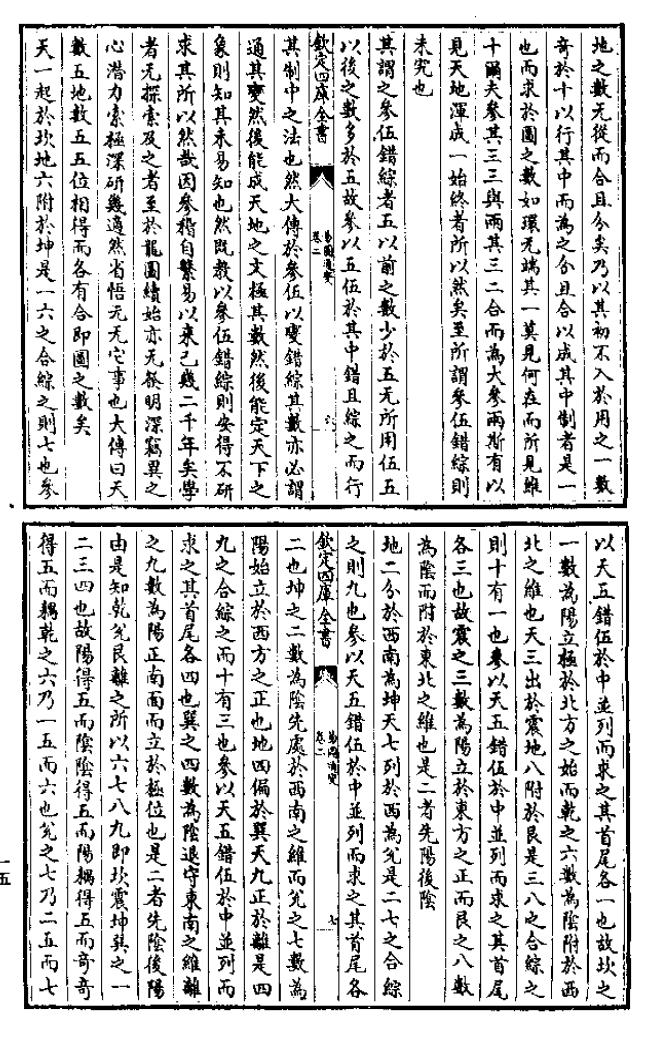 地之數无從而合且分矣乃以其初不入於用之一數
奇於十以行其中而為之分且合以成其中制者是一
也而求於圖之數如環无端其一莫見何在而所見維
十爾夫參其三三與兩其三二合而為大參兩斯有以
見天地渾成一始終者所以然矣至所謂參伍錯綜則
未究也
其謂之參伍錯綜者五以前之數少於五无所用伍五
以後之數多於五故參以五伍於其中錯且綜之而行
欽定四庫全書
易圖通變
卷二
六
其制中之法也然大傳於參伍以變錯綜其數亦必謂
通其變然後能成天地之文極其數然後能定天下之
象則知其未易知也然既教以參伍錯綜則安得不研
求其所以然哉因參稽自繫易以來已幾二千年矣學
者无探索及之者至於龍圖續始亦无發明深竊異之
心潛力索極深研幾適然省悟无它事也大傳曰天
數五地數五五位相得而各有合即圖之數矣
天一起於坎地六附於坤是一六之合綜之則七也參
以天五錯伍於中並列而求之其首尾各一也故坎之
一數為陽立極於北方之始而乾之六數為陰附於西
北之維也天三出於震地八附於艮是三八之合綜之
則十有一也參以天五錯伍於中並列而求之其首尾
各三也故震之三數為陽立於東方之正而艮之八數
為陰而附於東北之維也是二者先陽後陰
地二分於西南為坤天七列於西為兌是二七之合綜
之則九也參以天五錯伍於中並列而求之其首尾各
欽定四庫全書
易圖通變
卷二
七
二也坤之二數為陰先處於西南之維而兌之七數為
陽始立於西方之正也地四偏於巽天九正於離是四
九之合綜之而十有三也參以天五錯伍於中並列而
求之其首尾各四也巽之四數為陰退守東南之維離
之九數為陽正南面而立於極位也是二者先陰後陽
由是知乾兌艮離之所以六七八九即坎震坤巽之一
二三四也故陽得五而陰陰得五而陽耦得五而奇奇
得五而耦乾之六乃一五而六也兌之七乃二五而七
一五